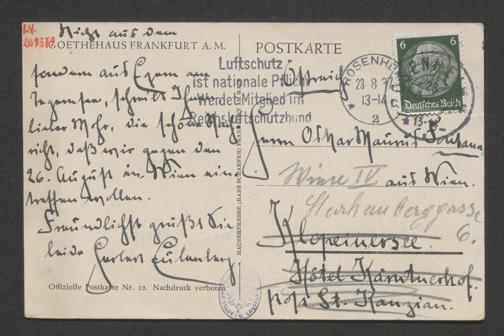 Nicht aus dem
GOETHEHAUS FRANKFURT A. M.
sondern aus Egern am
Tegernsee, schreibt Ihnen,
lieber Mohr, die schöne Nach-
richt, daß wir gegen den
26. August in Wien ein
treffen wollen.
Freundlichst grüßt Sie
beide Herbert Eulenberg.
Offizielle Postkarte Nr. 12. Nachdruck verboten
POSTKARTE
Luftschutz
ist nationale Pflicht
Werdet Mitglied im
Reichsluftschutzbund
Österreich
ROSENHEIM
23 8. 37
13-14
2
6 6
Deutsches Reich
Herrn Oskar Maurus Fontana
Wien IV aus Wien.
Starhemberggasse
6.
Klopeinersee
Hôtel Kärntnerhof.
post St. Kanzian.